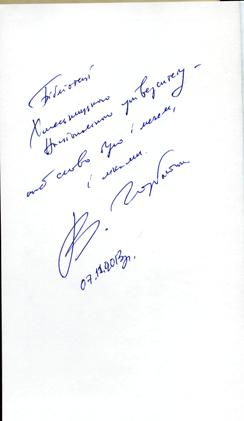 Бібліотеці
Хмельницького
Національного університету –
щоб слово було і мечем,
і
В. Горбатюк
07.11.2013р.